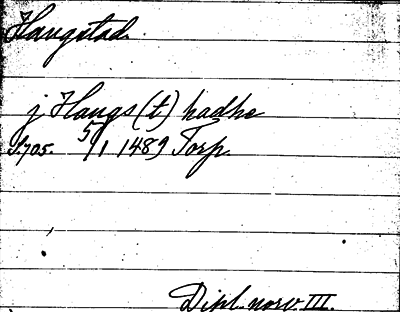 Haugstad.
j Haugs(t)hadhe
S. 705. 5/1 1489 Torp.
Dipl. norv. III.